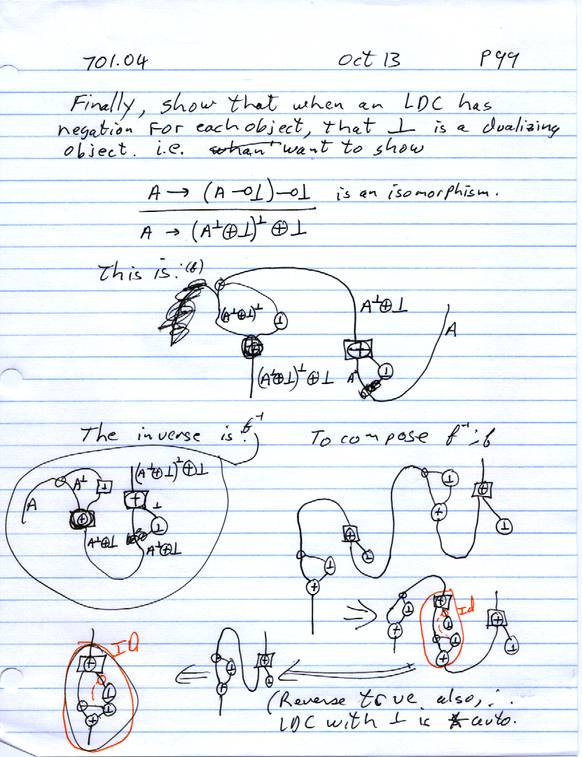 701.04 Oct 13 P99
Finally, show that when an LDC has
negation for each object, that ⊥ is a dualizing
object. i.e. want to show
A → (A⊸⊥)⊸⊥ is an isomorphism.
A → (A^⊥⊕⊥)^⊥ ⊕ ⊥
This is: (f)
(A^⊥⊕⊥)^⊥ ⊥ A^⊥⊕⊥ A
⊕ ⊕ ⊥
(A^⊥⊕⊥)^⊥⊕⊥ A^⊥
The inverse is: f^-1 To compose f^-1; f
(A^⊥⊕⊥)^⊥⊕⊥
A A^⊥ ⊥ ⊕ ⊥
⊕ ⊥
A^⊥⊕⊥ A^⊥⊕⊥
⇒ Id
ID
(Reverse true also, ∴
LDC with ⊥ is *-auto.